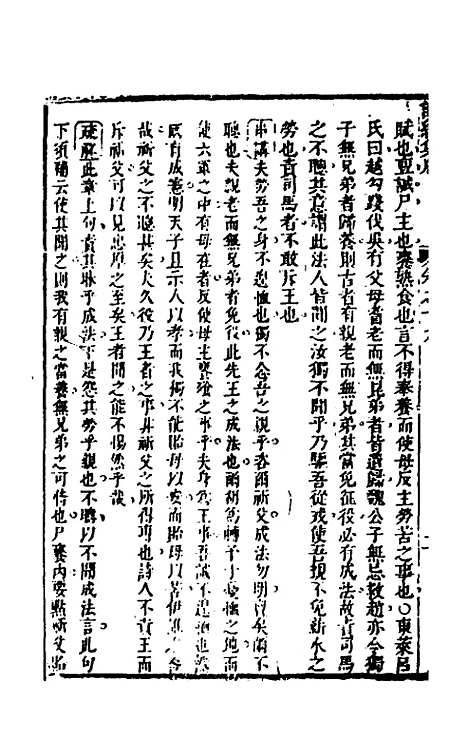 賦也亶誠尸主也饔熟食也言不得奉養而使母反主勞苦之事也○東萊呂
氏曰越勾踐伐吳有父母耆老而無昆弟者皆遣歸魏公子無忌救趙亦令獨
子無兄弟者歸養則古者有親老而無兄弟其當免征役必有成法故責司馬
之不聰其意謂此法人皆聞之汝獨不聞乎乃驅吾從戎使吾親不免薪水之
勞也責司馬者不敢斥王也
串講夫勞吾之身不恤也獨不念吾之親乎吝爾祈父成法勿明
聰也夫親老而無兄弟者免役此先王之成法也爾胡為轉予于恤之地而
使六軍之中有母在者反使母主饔飧之事乎夫身為王事吾誠不遑也而
既有成憲明天子且示人以孝而我獨不能貽母以安而貽母以苦伊誰之咎
哉祈父之不聰甚矣夫久役乃王者之事非祈父之所得專也詩人不責王而
斥祈父可以見忠厚之至矣王者聞之能不惕然乎哉
疏解此章上句責其昧乎成法下是怨其勞乎親也不聰以不聞成法言此句
下須補云使其聞之則我有親之當養無兄弟之可侍也尸饔內要點祈父